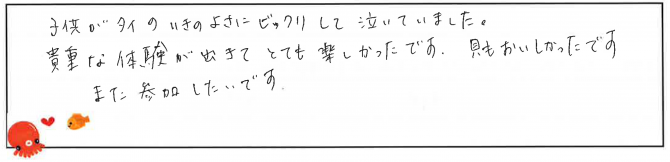 子供がタイのいきのよさにビックリして泣いていました。
貴重な体験が出きてとても楽しかったです. 貝もおいしかったです
また参加したいです.